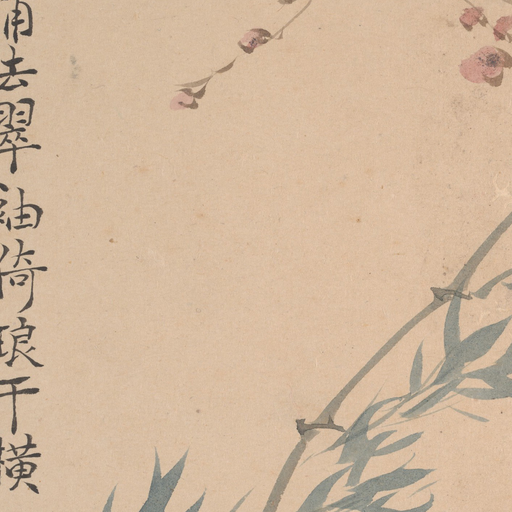 去翠袖倚琅干橫